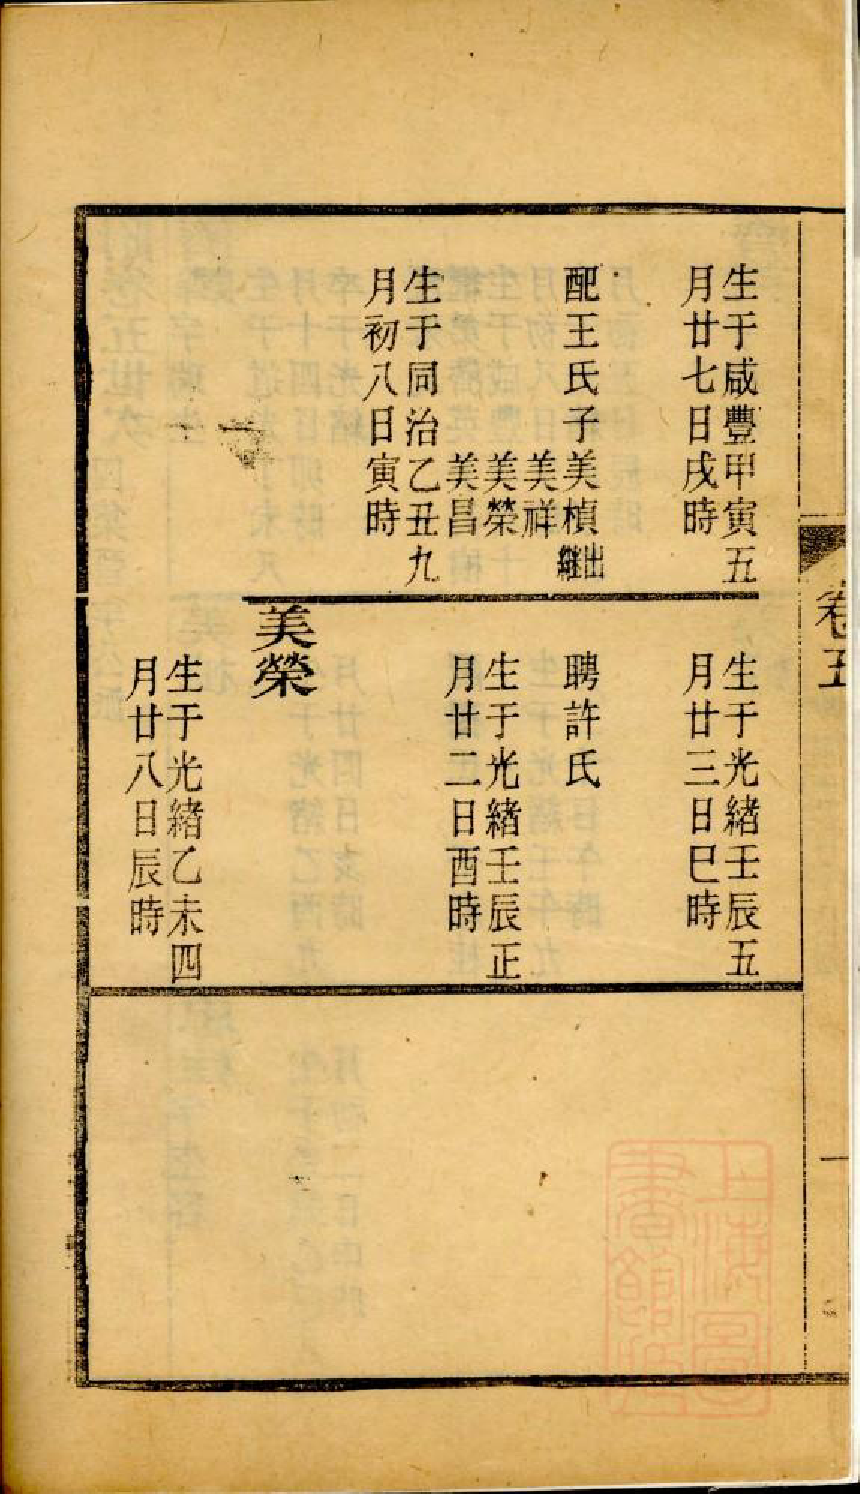 卷五
生于咸豐甲寅五
月廿七日戌時
配王氏子美楨出繼
美祥
美榮
美昌
生于同治乙丑九
月初八日寅時
生于光緒壬辰五
月廿三日巳時
聘許氏
生于光緒壬辰正
月廿二日酉時
美榮
生于光緒乙未四
月廿八日辰時
上海圖
書館藏